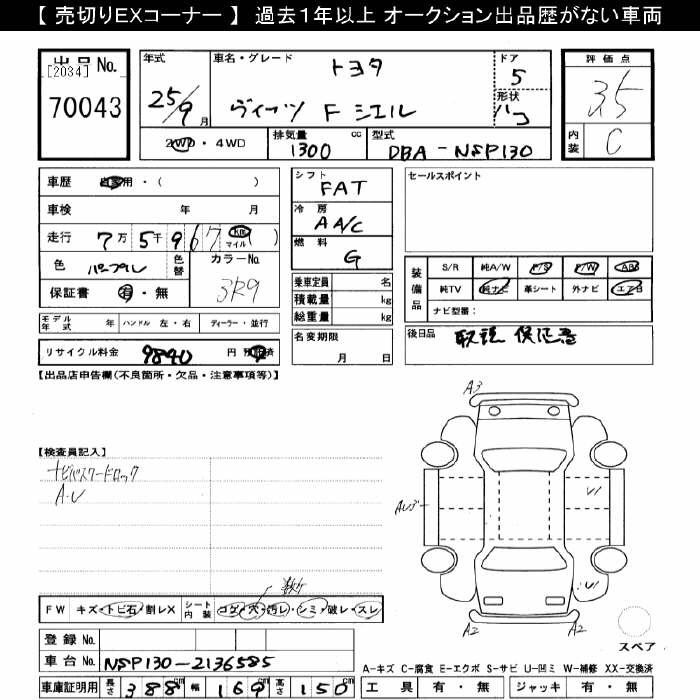 【 売切りEXコーナー 】 過去1年以上 オークション出品歴がない車両
出品 No.
[2034]
70043
年式
25/9月
車名・グレード
トヨタ
ヴィッツ F シエル
ドア
5
形状
ハコ
評価点
3.5
内装
C
2WD・4WD
排気量 cc
1300
型式
DBA-NSP130
車歴 自家用・( )
車検 年 月
走行 7万5千967 km マイル ( )
色 パープル 色替
カラーNo.
3R9
保証書 有・無
シフト
FAT
冷房
A A/C
燃料
G
乗車定員 名
積載量 kg
総重量 kg
名変期限
月 日
セールスポイント
装備品
S/R 純A/W P/S P/W ABS
純TV 純ナビ 革シート 外ナビ エアB
ナビ型番:
後日品 取説 保証書
モデル年式 年 ハンドル 左・右 ディーラー・並行
リサイクル料金 9840 円 預託済
【出品店申告欄(不良箇所・欠品・注意事項等)】
【検査員記入】
ナビパスワードロック
A・U
A3
AU3
U1
U1
A2
A2
スペア
FW キズ・トビ石・割レX シート内装 コゲ・穴・汚レ・シミ・破レ・スレ
登録 No.
車台 No. NSP130-2136585
車庫証明用 長さ 388cm 幅 169cm 高さ 150cm
A-キズ C-腐食 E-エクボ S-サビ U-凹ミ W-補修 XX-交換済
工具 有・無 ジャッキ 有・無